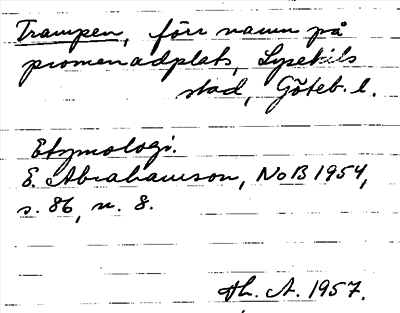 Trampen, förr namn på
promenadplats, Lysekils
stad, Göteb. l.
Etymologi.
E. Abrahamson, NoB 1954,
s. 86, n. 8.
Hh. A. 1957.